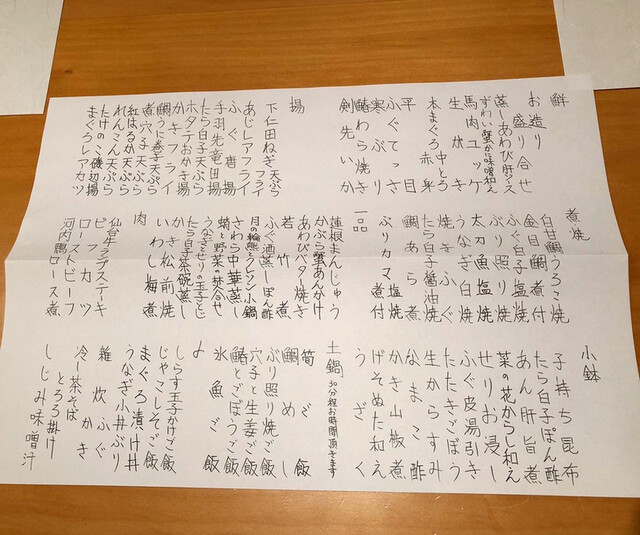 鮮
お造り盛り合せ
蒸しあわび肝ソース
ずわい蟹かに味噌和え
馬肉ユッケ
生がき
本まぐろ中とろ
赤身
平目
ふぐてっさ
寒ぶり
鰆わら焼き
剣先いか
揚
下仁田ねぎ天ぷら
フライ
あじレアフライ
ふぐ唐揚
手羽先竜田揚
たら白子天ぷら
ホタテおかき揚
かきフライ
鯛うに巻子天ぷら
煮穴子天ぷら
紅はるか天ぷら
れんこん天ぷら
たけのこ磯辺揚
まぐろレアカツ
煮焼
白甘鯛うろこ焼
金目鯛煮付
ふぐ白子塩焼
ぶり照り焼
太刀魚塩焼
うなぎ白焼
焼きふぐ
たら白子醤油焼
鯛あら煮
ぶりカマ塩焼
煮付
一品
蓮根まんじゅう
かぶら蟹あんかけ
あわびバター焼き
若竹煮
ふぐ酒蒸しぽん酢
さわら中華蒸し
蛸と野菜の焚合せ
うなぎとせりの玉子とじ
たら白子茶碗蒸し
かき松前焼
いわし梅煮
肉
仙台牛ランプステーキ
ビフカツ
ローストビーフ
河内鴨ロース煮
小鉢
子持ち昆布
たら白子ぽん酢
あん肝旨煮
菜の花からし和え
せりお浸し
ふぐ皮湯引き
たたきごぼう
生からすみ
なまこ酢
かき山椒煮
げそぬた和え
うざく
土鍋 30分程お時間頂きます
筍ご飯
鯛めし
ぶり照り焼ご飯
穴子と生姜ご飯
鰆とごぼうご飯
氷魚ご飯
〆
しらす玉子かけご飯
じゃこしそご飯
まぐろ漬け丼
うなぎ小丼
雑炊 ふぐ
かき
ぶり
冷し茶そば
とろろ掛け
しじみ味噌汁